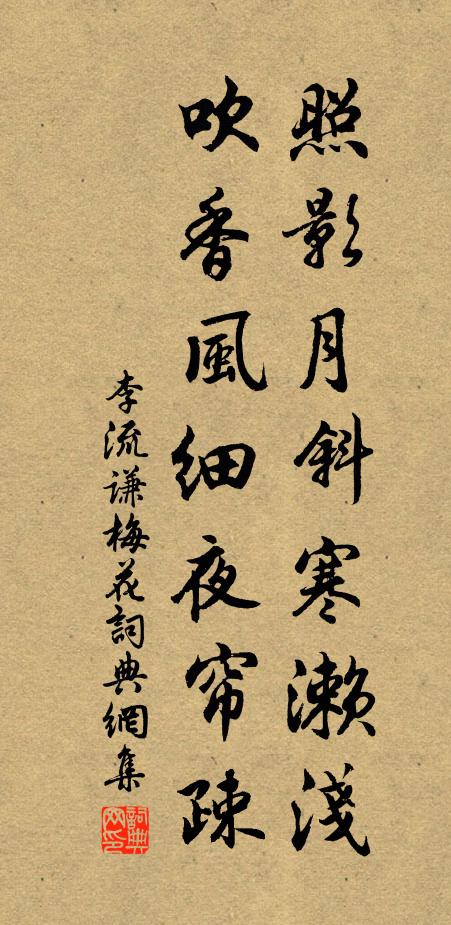 照影月斜寒濑淺
吹香風细夜帘疎
李流谦梅花詞典網集
詞典網印